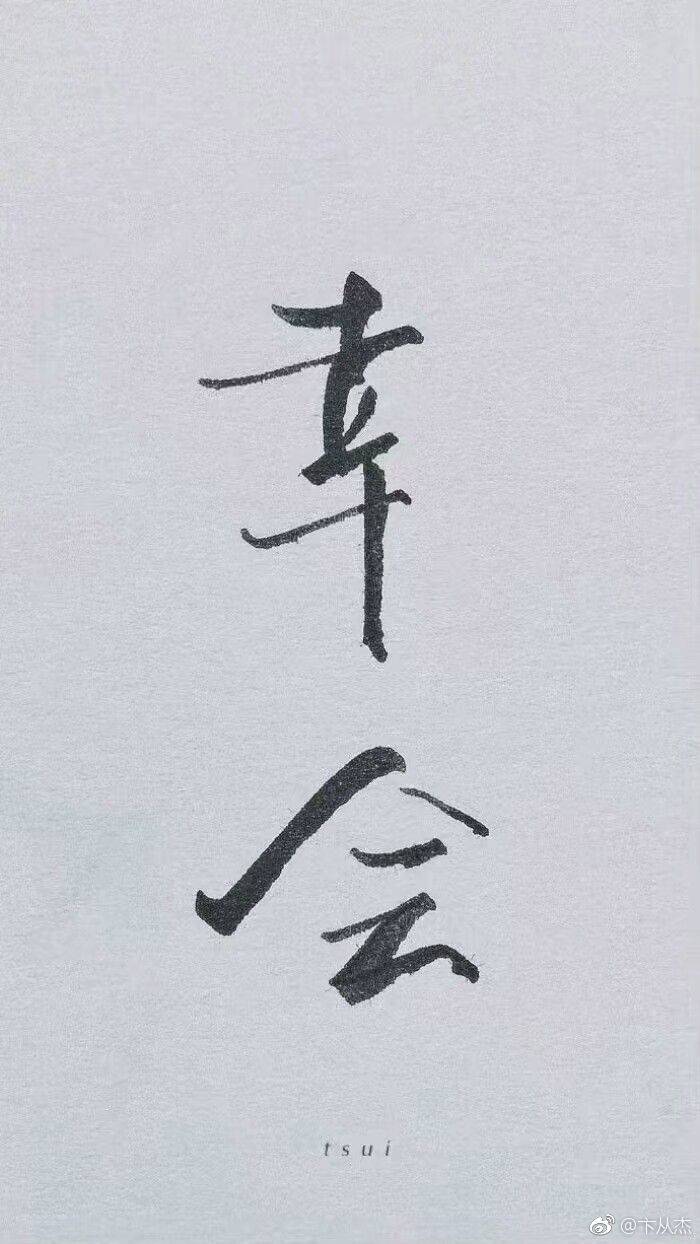 幸会
tsui
@卞从杰